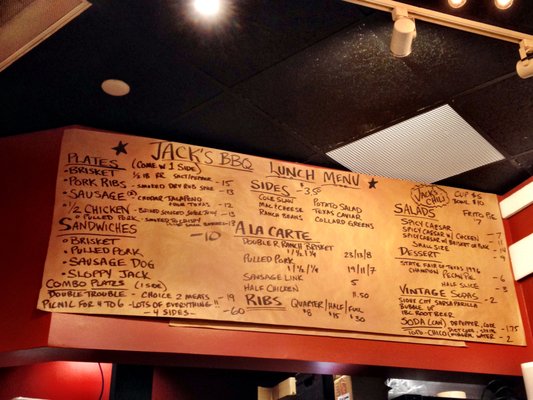 JACK'S BBQ LUNCH MENU
PLATES (COME W 1 SIDE)
- BRISKET 1/2 LB
- PORK RIBS - SMOKED DRY RUB SPARE - 15
- SAUSAGE - CHEDDAR-JALAPENO - 13
FROM TEXAS
- 1/2 CHICKEN
- PULLED PORK - 13
SANDWICHES - 10
- BRISKET
- PULLED PORK
- SAUSAGE DOG
- SLOPPY JACK
COMBO PLATES (1 SIDE)
DOUBLE TROUBLE - CHOICE 2 MEATS - 19
PICNIC FOR 4 TO 6 - LOTS OF EVERYTHING!! - 60
- 4 SIDES -
SIDES - 3.50
COLE SLAW POTATO SALAD
MAC CHEESE TEXAS CAVIAR
RANCH BEANS COLLARD GREENS
A LA CARTE
DOUBLE R RANCH BRISKET
1 / 1/2 / 1/4 23/13/8
PULLED PORK
1 / 1/2 / 1/4 19/11/7
SAUSAGE LINK 5
HALF CHICKEN 11.50
RIBS QUARTER/HALF/FULL
$8 $15 $30
JACK'S CHILI
CUP $5
BOWL $10
FRITO PIE
7
SALADS
SPICY CAESAR - 7
SPICY CAESAR W/ CHICKEN
SPICY CAESAR W/ BRISKET OR PORK
SMALL SIZE
DESSERT
STATE FAIR OF TEXAS 1996
CHAMPION PECAN PIE - 6
HALF SLICE - 3
VINTAGE SODAS - 2
SIOUX CITY SARSAPARILLA
BUBBLE UP
IBC ROOT BEER
SODA (CAN) DR PEPPER, COKE - 1.75
DIET COKE, SPRITE
TOPO-CHICO (MINERAL WATER) - 2